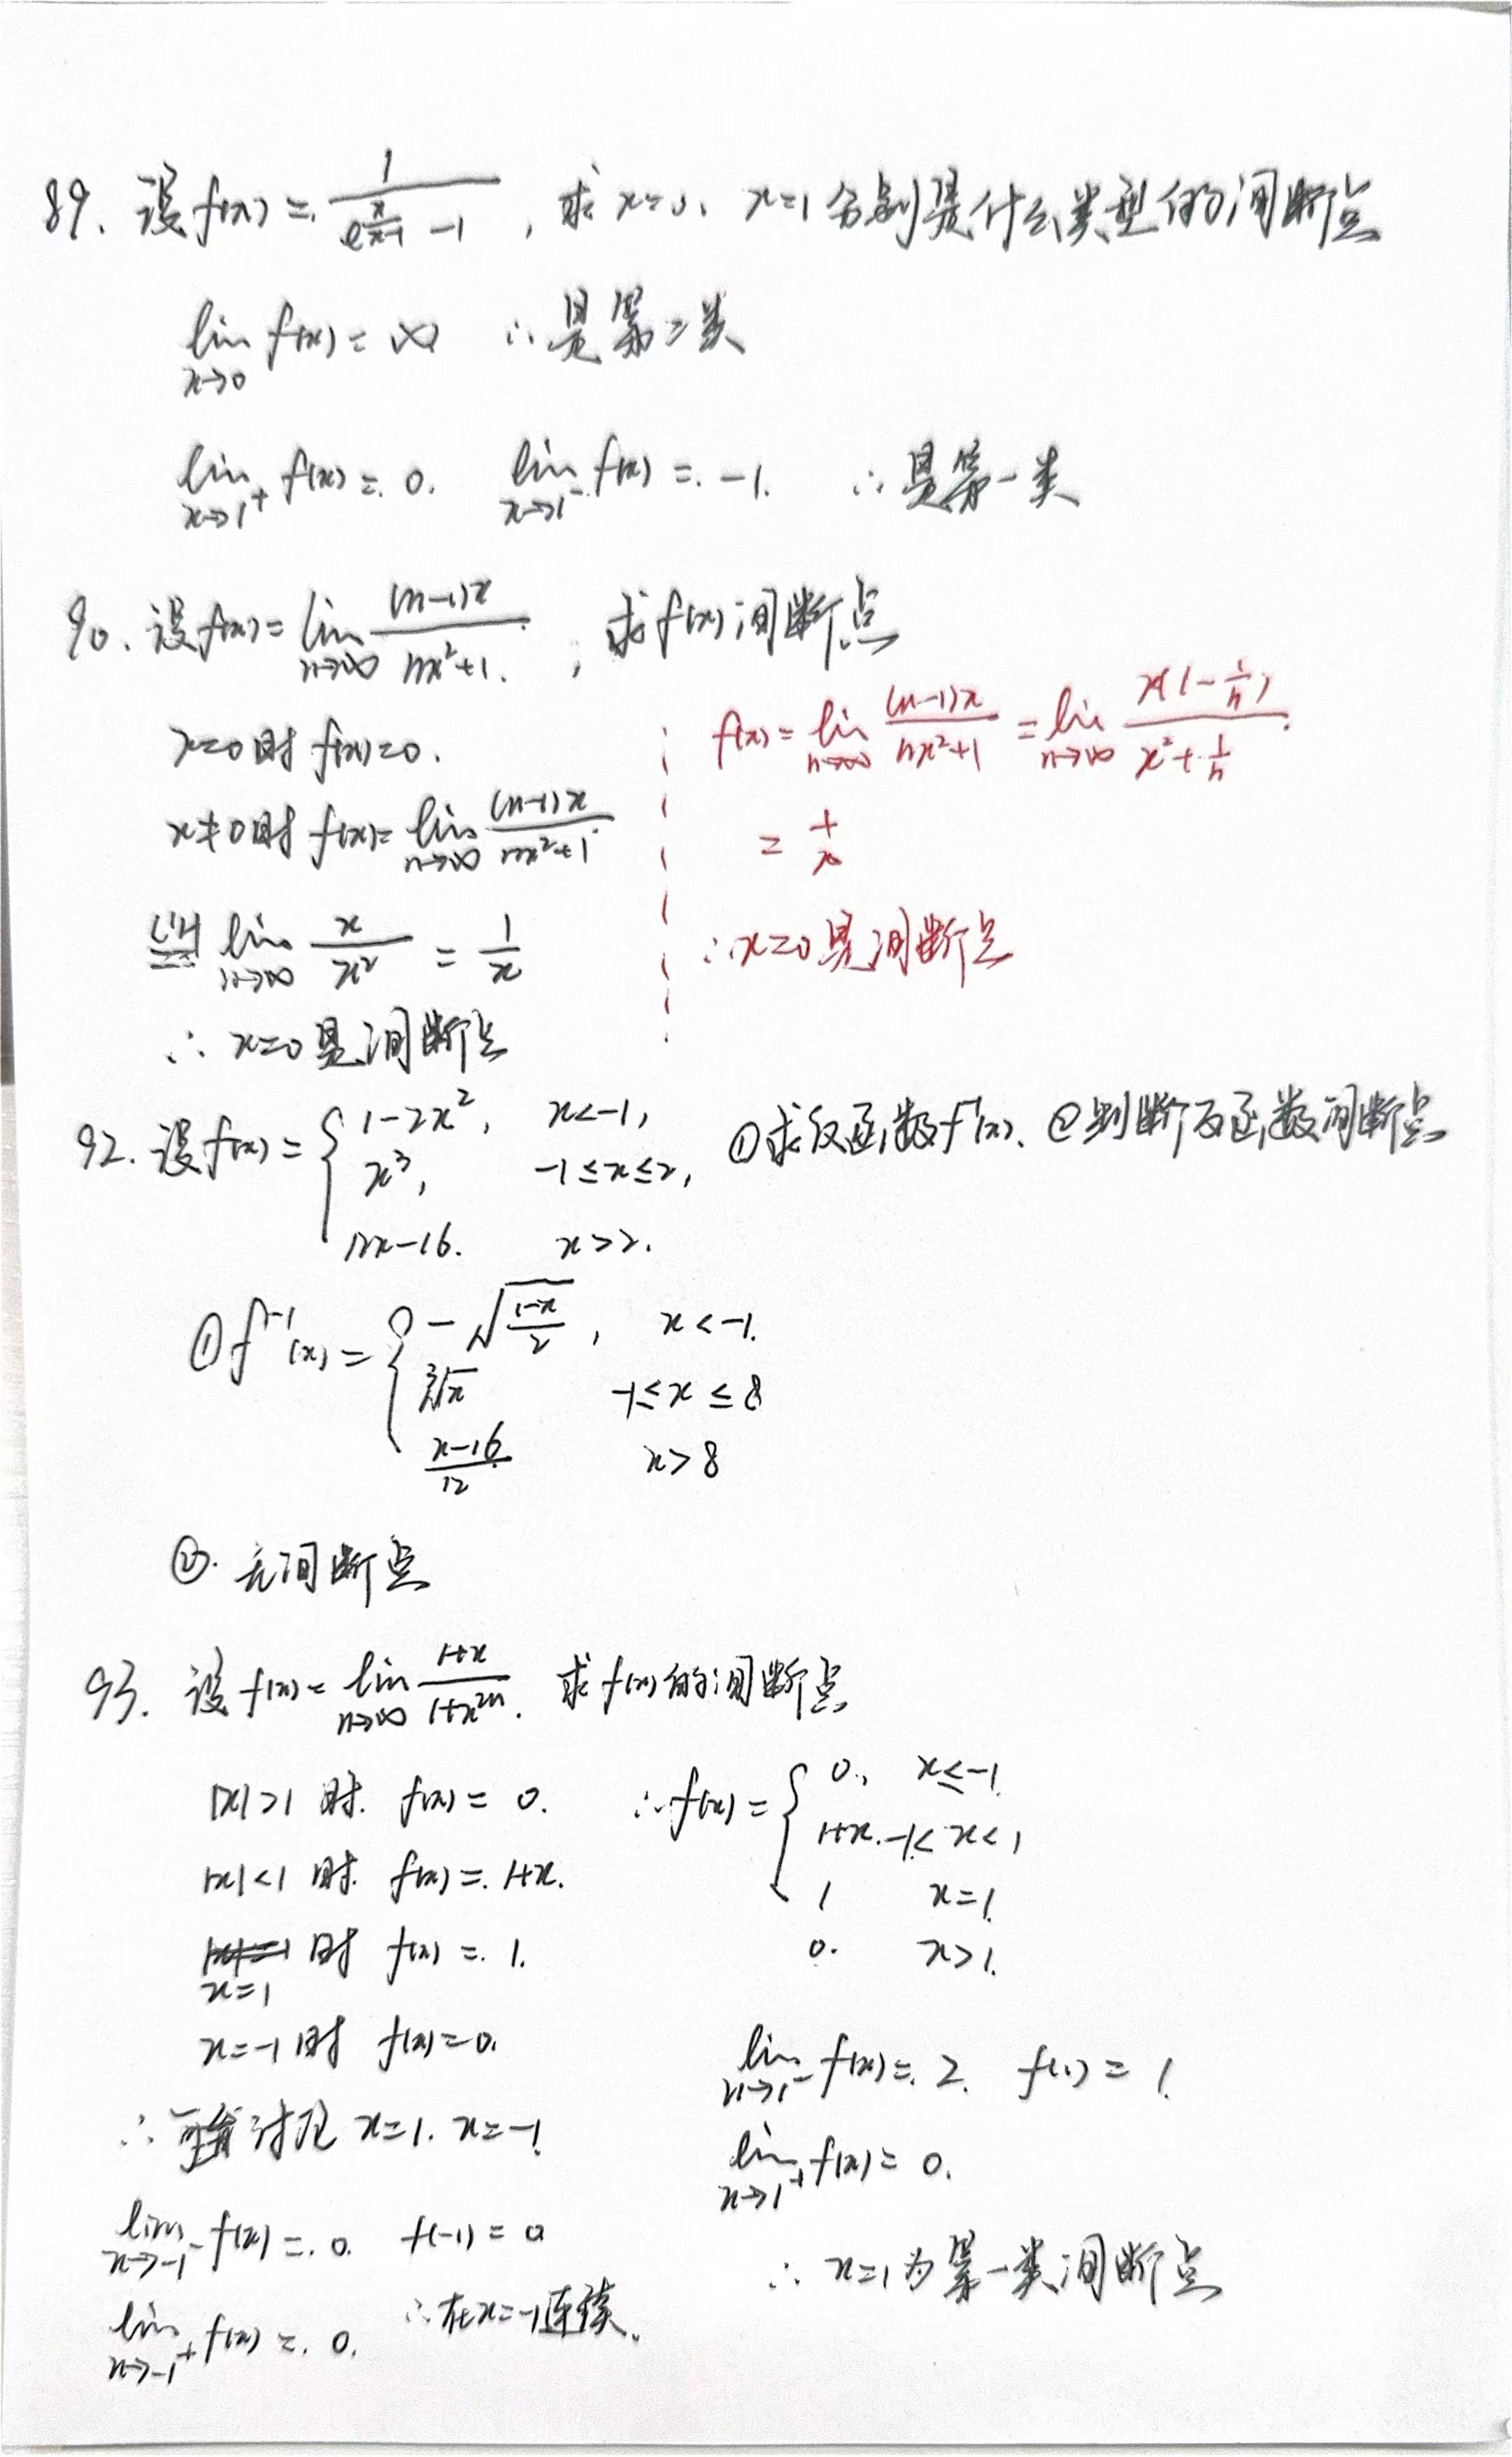 89. 设f(x)=1/(e^(x/(x-1))-1), 求x=0、x=1分别是什么类型的间断点
lim x→0 f(x)=∞ ∴是第二类
lim x→1⁺ f(x)=0. lim x→1⁻ f(x)=-1. ∴是第一类
90. 设f(x)=lim n→∞ (n-1)x/(nx²+1), 求f(x)间断点
x=0时 f(x)=0.
x≠0时 f(x)=lim n→∞ (n-1)x/(nx²+1)
L'H = lim n→∞ x/x² = 1/x
∴ x=0是间断点
f(x)=lim n→∞ (n-1)x/(nx²+1) = lim n→∞ x(1-1/n)/(x²+1/n)
= 1/x
∴x=0是间断点
92. 设f(x)={ 1-2x², x<-1, ①求反函数f⁻¹(x). ②判断反函数间断点
x³, -1≤x≤2,
12x-16. x>2.
①f⁻¹(x)={ -√((1-x)/2), x<-1.
³√x -1≤x≤8
(x-16)/12 x>8
②. 无间断点
93. 设f(x)=lim n→∞ (1+x)/(1+x²ⁿ). 求f(x)的间断点
|x|>1 时. f(x)=0.
|x|<1 时. f(x)=1+x.
x=1 时 f(x)=1.
x=-1时 f(x)=0.
∴ 讨论 x=1. x=-1.
lim x→-1⁻ f(x)=0. f(-1)=0
lim x→-1⁺ f(x)=0. ∴在x=-1连续.
∴f(x)={ 0, x≤-1.
1+x. -1<x<1
1 x=1.
0. x>1.
lim x→1⁻ f(x)=2. f(1)=1.
lim x→1⁺ f(x)=0.
∴ x=1为第一类间断点